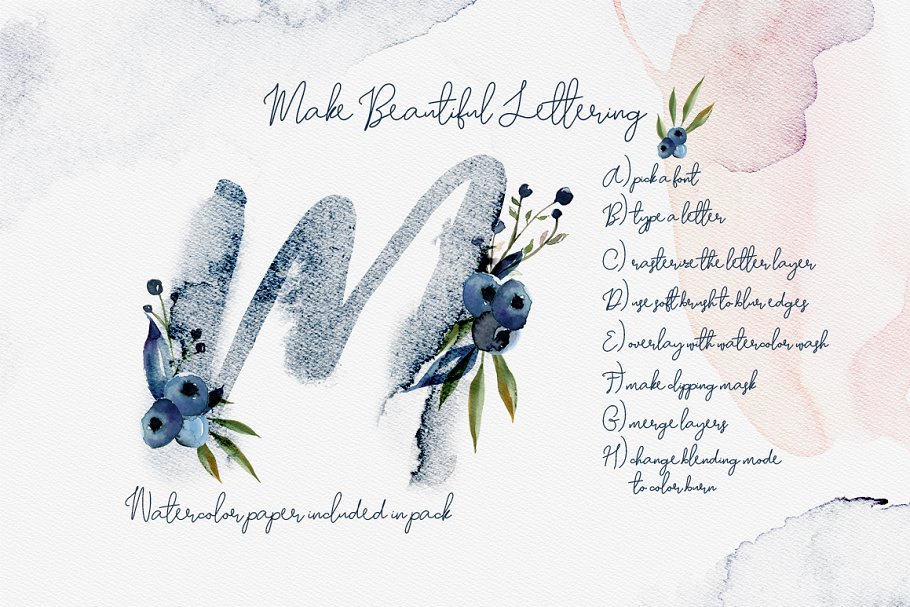 Make Beautiful Lettering
M
A) pick a font
B) type a letter
C) rasterize the letter layer
D) use soft brush to blur edges
E) overlay with watercolor wash
F) make clipping mask
G) merge layers
H) change blending mode
to color burn
Watercolor paper included in pack